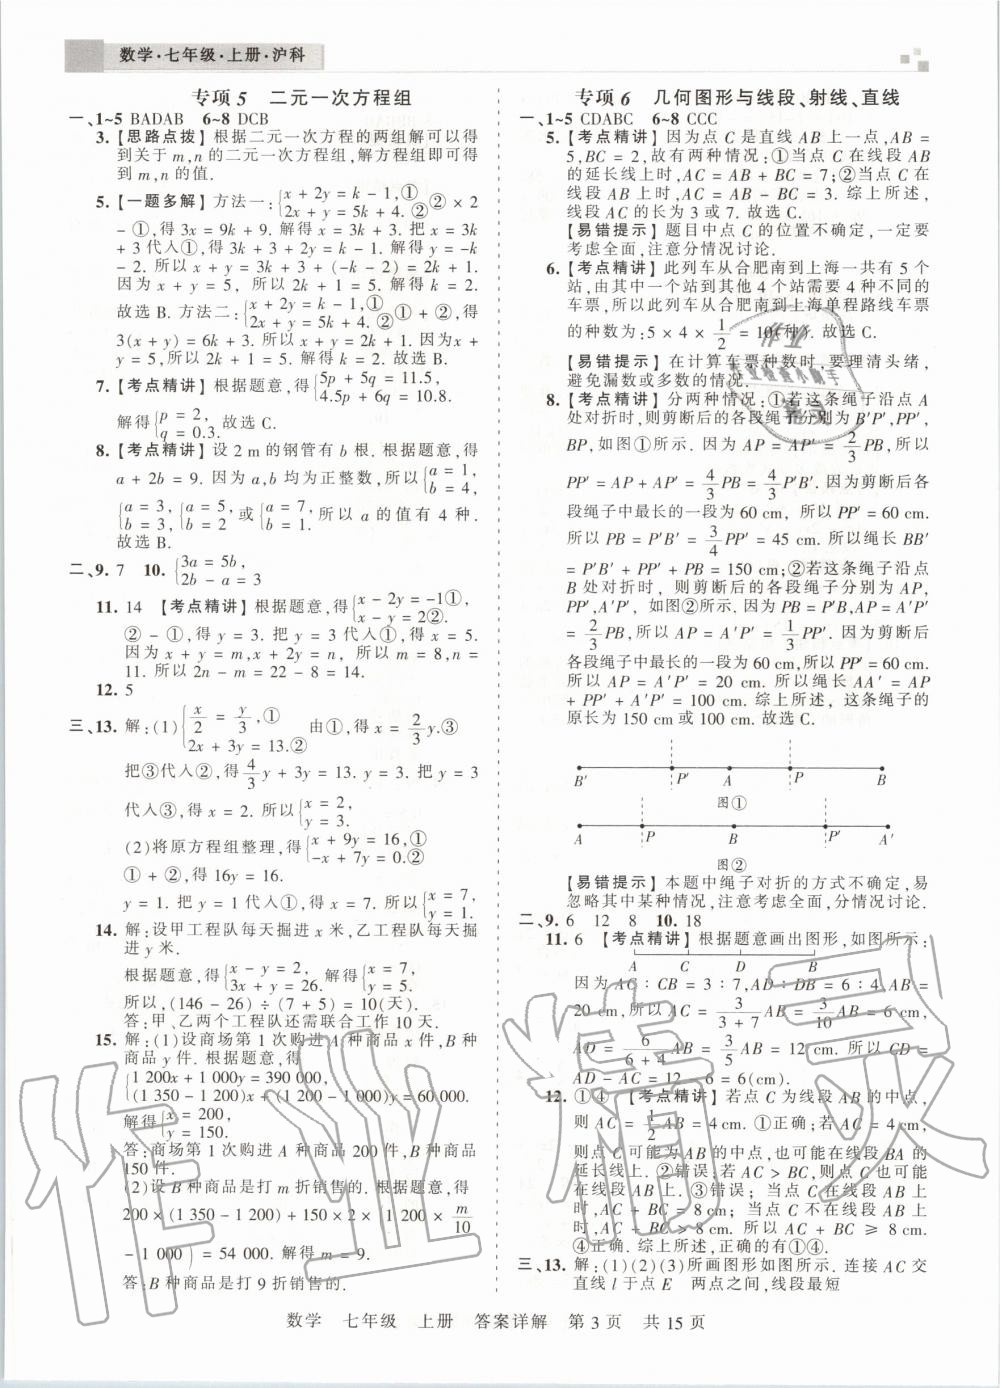 数学·七年级·上册·沪科
专项 5 二元一次方程组
一、1~5 BADAB 6~8 DCB
3.【思路点拨】根据二元一次方程的两组解可以得
到关于 m,n 的二元一次方程组,解方程组即可得
到 m,n 的值.
5.【一题多解】方法一:{x + 2y = k - 1,① 2x + y = 5k + 4. ② ② × 2
- ①,得 3x = 9k + 9. 解得 x = 3k + 3. 把 x = 3k
+ 3 代入①,得 3k + 3 + 2y = k - 1. 解得 y = -k
- 2. 所以 x + y = 3k + 3 + (-k - 2) = 2k + 1.
因为 x + y = 5, 所以 2k + 1 = 5. 解得 k = 2.
故选 B. 方法二:{x + 2y = k - 1,① 2x + y = 5k + 4. ② ① + ②,得
3(x + y) = 6k + 3. 所以 x + y = 2k + 1. 因为x +
y = 5,所以 2k + 1 = 5. 解得 k = 2. 故选 B.
7.【考点精讲】根据题意,得{5p + 5q = 11.5, 4.5p + 6q = 10.8.
解得{p = 2, q = 0.3. 故选 C.
8.【考点精讲】设 2 m 的钢管有 b 根. 根据题意,得
a + 2b = 9. 因为 a,b 均为正整数,所以{a = 1, b = 4,
{a = 3, b = 3, {a = 5, b = 2 或{a = 7, b = 1. 所以 a 的值有 4 种.
故选 B.
二、9. 7 10. {3a = 5b, 2b - a = 3
11. 14 【考点精讲】根据题意,得{x - 2y = -1①, x - y = 2②.
② - ①,得 y = 3. 把 y = 3 代入①,得 x = 5.
因为 x + y = m,x + 2y = n, 所以 m = 8,n =
11. 所以 2n - m = 22 - 8 = 14.
12. 5
三、13. 解:(1){x/2 = y/3,① 2x + 3y = 13.② 由①,得 x = 2/3 y.③
把③代入②,得 4/3 y + 3y = 13. y = 3. 把 y = 3
代入③,得 x = 2. 所以{x = 2, y = 3.
(2)将原方程组整理,得{x + 9y = 16,① -x + 7y = 0.②
① + ②,得 16y = 16.
y = 1. 把 y = 1 代入①,得 x = 7. 所以{x = 7, y = 1.
14. 解:设甲工程队每天掘进 x 米,乙工程队每天掘
进 y 米.
根据题意,得{x - y = 2, 3x + y = 26. 解得{x = 7, y = 5.
所以,(146 - 26) ÷ (7 + 5) = 10(天).
答:甲、乙两个工程队还需联合工作 10 天.
15. 解:(1)设商场第 1 次购进 A 种商品 x 件,B 种
商品 y 件. 根据题意,得
{1 200x + 1 000y = 390 000, (1 350 - 1 200)x + (1 200 - 1 000)y = 60 000.
解得{x = 200, y = 150.
答:商场第 1 次购进 A 种商品 200 件,B 种商品
150 件.
(2)设 B 种商品是打 m 折销售的. 根据题意,得
200 × (1 350 - 1 200) + 150 × 2 × (1 200 × m/10
- 1 000) = 54 000. 解得 m = 9.
答:B 种商品是打 9 折销售的.
专项 6 几何图形与线段、射线、直线
一、1~5 CDABC 6~8 CCC
5.【考点精讲】因为点 C 是直线 AB 上一点,AB =
5,BC = 2,故有两种情况:①当点 C 在线段 AB
的延长线上时,AC = AB + BC = 7;②当点 C 在
线段 AB 上时,AC = AB - BC = 3. 综上所述,
线段 AC 的长为 3 或 7. 故选 C.
【易错提示】题目中点 C 的位置不确定,一定要
考虑全面,注意分情况讨论.
6.【考点精讲】此列车从合肥南到上海一共有 5 个
站,由其中一个站到其他 4 个站需要 4 种不同的
车票,所以此列车从合肥南到上海单程路线车票
的种数为:5 × 4 × 1/2 = 10(种). 故选 C.
【易错提示】在计算车票种数时,要理清头绪,
避免漏数或多数的情况.
8.【考点精讲】分两种情况:①若这条绳子沿点 A
处对折时,则剪断后的各段绳子分别为 B′P′,PP′,
BP,如图①所示. 因为 AP = AP′ = 2/3 PB,所以
PP′ = AP + AP′ = 4/3 PB = 4/3 P′B′. 因为剪断后各
段绳子中最长的一段为 60 cm, 所以 PP′ = 60 cm.
所以 PB = P′B′ = 3/4 PP′ = 45 cm. 所以绳长 BB′
= P′B′ + PP′ + PB = 150 cm;②若这条绳子沿点
B 处对折时, 则剪断后的各段绳子分别为 AP,
PP′,A′P′, 如图②所示. 因为 PB = P′B,AP = A′P′
= 2/3 PB,所以 AP = A′P′ = 1/3 PP′. 因为剪断后
各段绳子中最长的一段为 60 cm,所以 PP′ = 60 cm.
所以 AP = A′P′ = 20 cm. 所以绳长 AA′ = AP
+ PP′ + A′P′ = 100 cm. 综上所述, 这条绳子的
原长为 150 cm 或 100 cm. 故选 C.
B′ P′ A P B
图①
A P B P′ A′
图②
【易错提示】本题中绳子对折的方式不确定,易
忽略其中某种情况,注意考虑全面,分情况讨论.
二、9. 6 12 8 10. 18
11. 6 【考点精讲】根据题意画出图形,如图所示:
A C D B
因为 AC∶CB = 3∶7,AD∶DB = 6∶4,AB =
20 cm,所以 AC = 3/(3 + 7) AB = 3/10 AB = 6 cm,
AD = 6/(6 + 4) AB = 3/5 AB = 12 cm. 所以 CD =
AD - AC = 12 - 6 = 6(cm).
12. ①④ 【考点精讲】若点 C 为线段 AB 的中点,
则 AC = 1/2 AB = 4 cm,①正确. 若 AC = 4 cm,
则点 C 可能为 AB 的中点,也可能在线段 BA 的
延长线上. ②错误;若 AC > BC,则点 C 也可能
在线段 AB 上. ③错误;当点 C 在线段 AB 上
时,AC + BC = 8 cm;当点 C 不在线段 AB 上
时,AC + BC > 8 cm. 所以 AC + BC ≥ 8 cm.
④正确. 综上所述,正确的有①④.
三、13. 解:(1)(2)(3)所画图形如图所示. 连接 AC 交
直线 l 于点 E 两点之间,线段最短
数学 七年级 上册 答案详解 第 3 页 共 15 页
作业精灵